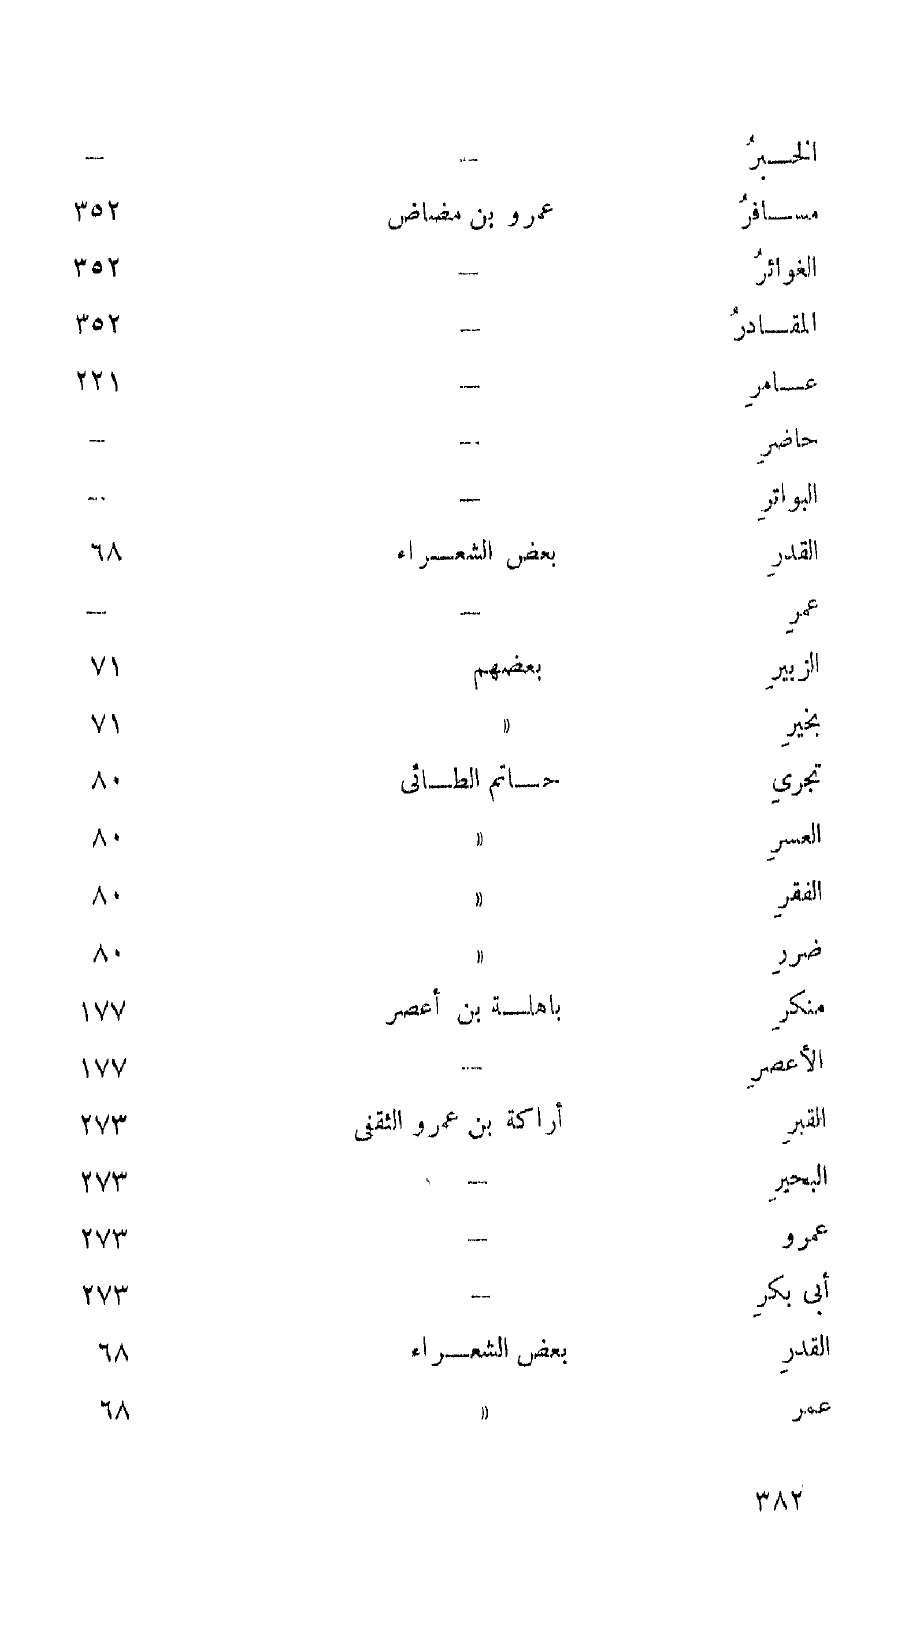 الخبرُ — —
مسافرُ عمرو بن مضاض ٣٥٢
الغوائرُ — ٣٥٢
المقادرُ — ٣٥٢
عامرِ — ٢٢١
حاضرِ — —
البواترِ — —
القدرِ بعض الشعراء ٦٨
عمرِ — —
الزبيرِ بعضهم ٧١
بخيرِ » ٧١
تجري حاتم الطائى ٨٠
العسرِ » ٨٠
الفقرِ » ٨٠
ضررِ » ٨٠
منكرِ باهلة بن أعصر ١٧٧
الأعصرِ — ١٧٧
القبرِ أراكة بن عمرو الثقفى ٢٧٣
البحيرِ — ٢٧٣
عمرو — ٢٧٣
أبى بكرِ — ٢٧٣
القدرِ بعض الشعراء ٦٨
عمر » ٦٨
٣٨٢